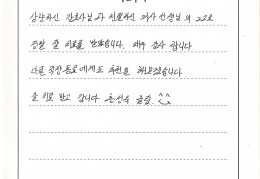 상냥하신 간호사님과 친절하신 의사 선생님의 으로
정말 잘 치료를 받았습니다. 매우 감사 합니다
다른 직장동료에게도 추천을 해드리겠습니다.
잘 치료 받고 갑니다 ^^